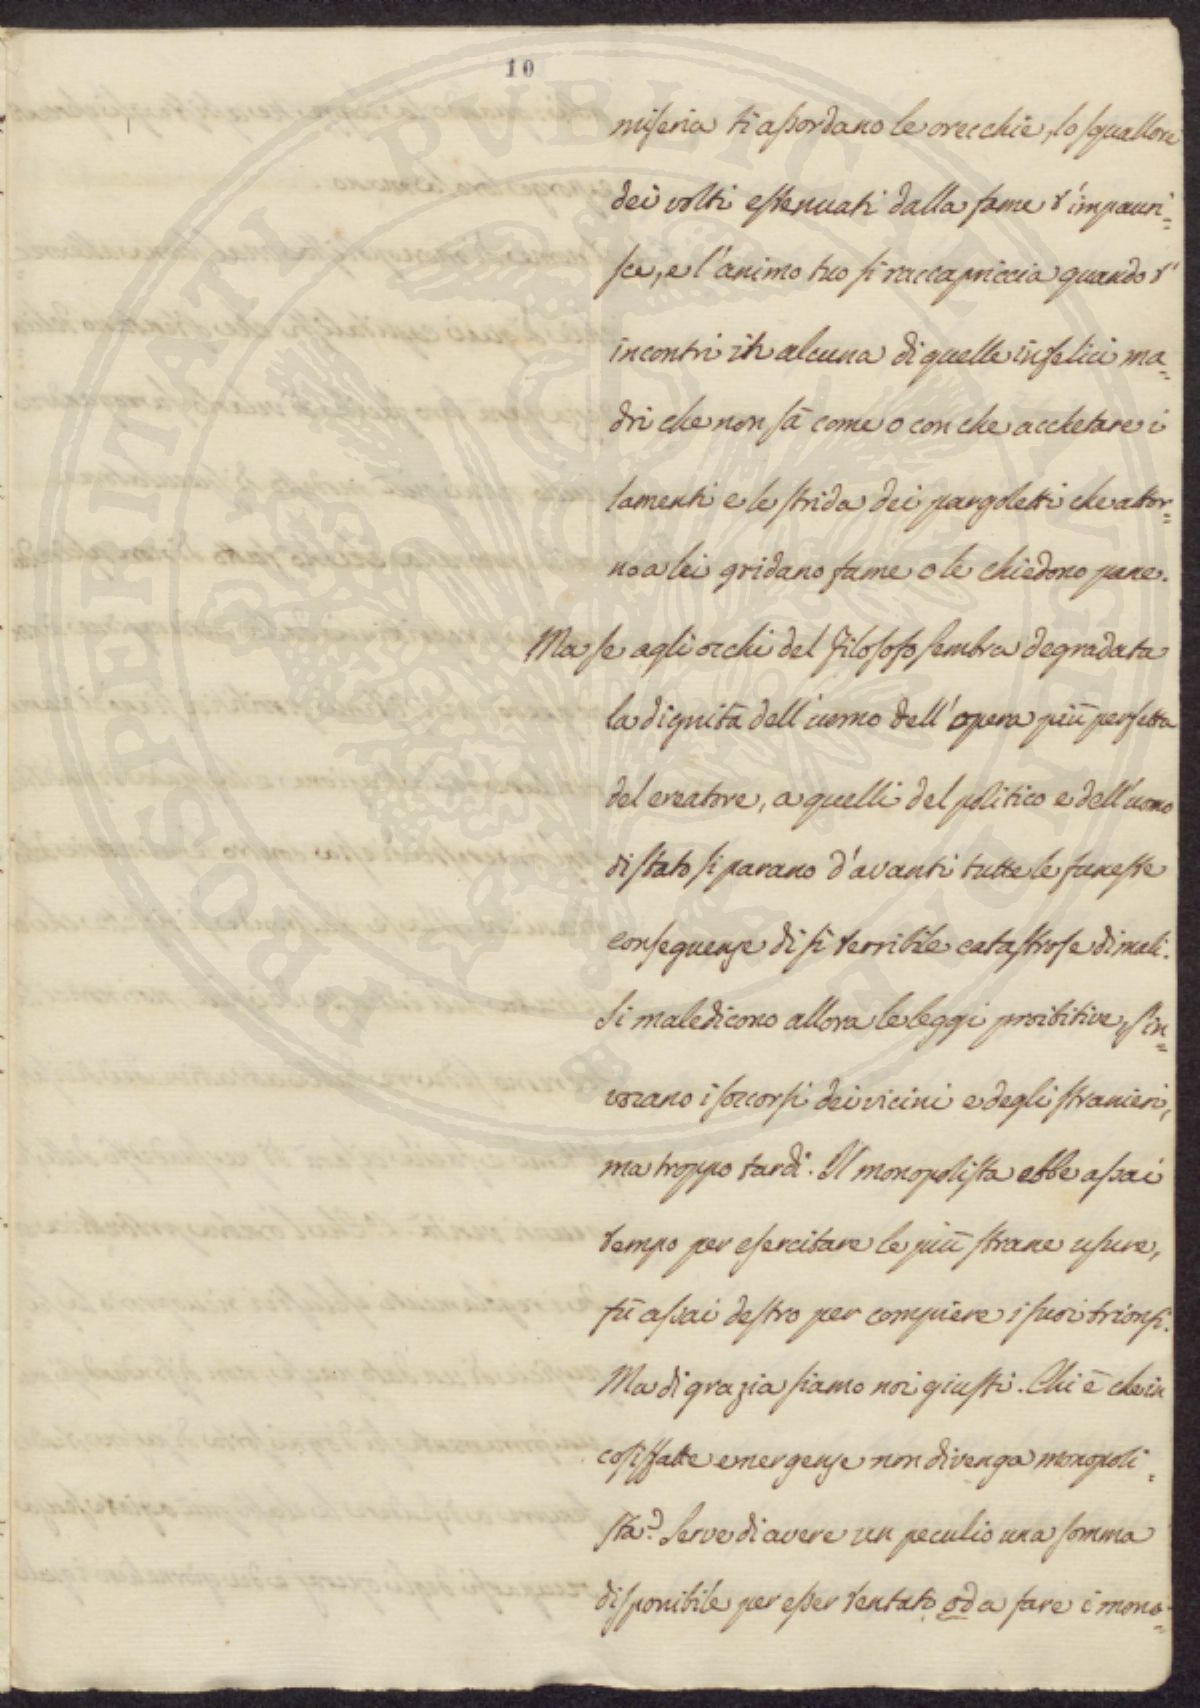 10
miseria ti assordano le orecchie, lo squallore
dei volti estenuati dalla fame t'impauri=
sce, e l'animo tuo si raccapriccia quando t'
incontri in alcuna di quelle infelici ma=
dri che non sà come o con che acchetare i
lamenti e le strida dei pargoletti che attor=
no a lei gridano fame o le chiedono pane.
Ma se agli occhi del filosofo sembra degradata
la dignità dell'uomo dell'opera più perfetta
del creatore, a quelli del politico e dell'uomo
di stato si parano d'avanti tutte le funeste
conseguenze di sì terribile catastrofe di mali.
Si maledicono allora le leggi proibitive, s'in=
vocano i soccorsi dei vicini e degli stranieri,
ma troppo tardi. Il monopolista ebbe assai
tempo per esercitare le più strane usure,
fù assai destro per compiere i suoi trionfi.
Ma di grazia siamo noi giusti. Chi è che in
cosiffatte emergenze non divenga monopoli=
sta? Serve di avere un peculio una somma
disponibile per esser tentato od a fare i mono=
PROSPERITATI PUBLICAE AUGENDAE